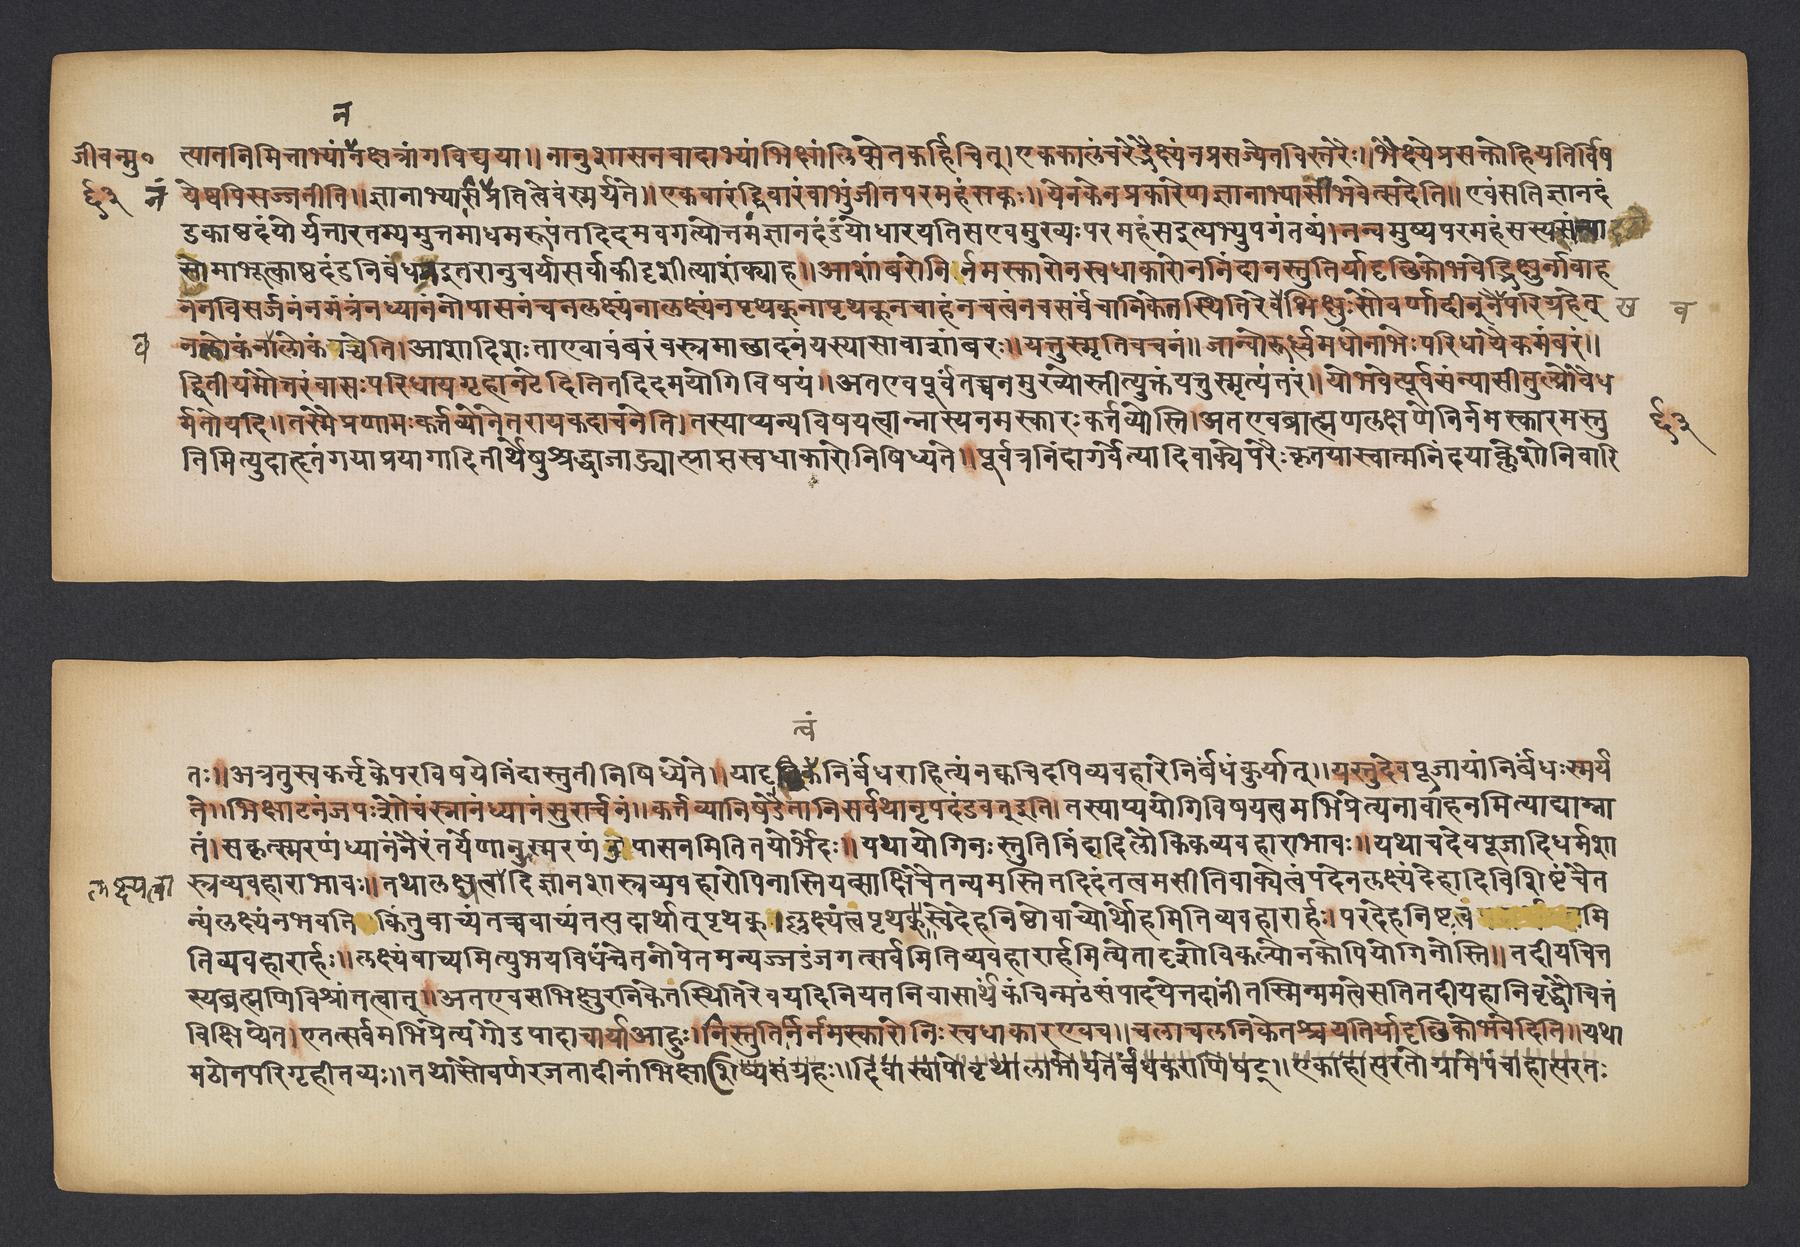 न
जीवन्मु०
त्पातनिमित्ताभ्यांनक्षत्रांगविद्यया॥नानुशासनवादाभ्यांभिक्षांलिप्सेतकर्हिचित्।एककालंचरेद्भैक्ष्यंनप्रसज्येतविस्तरे॥भैक्ष्येप्रसक्तोहियतिर्विष
६३ नं
येष्वपिसज्जतीति॥ज्ञानाभ्यासंप्रतित्वेवंस्मर्यते॥एकवारंद्विवारंवाभुंजीतपरमहंसकः॥येनकेनप्रकारेणज्ञानाभ्यासीभवेत्सदेति॥एवंसतिज्ञानदं
डकाष्ठदंडयोर्यत्तारतम्यमुत्तमाधमरूपंतदिदमवगत्योत्तमंज्ञानदंडंयोधारयतिसएवमुख्यःपरमहंसइत्यभ्युपगंतव्यं।नन्वमुष्यपरमहंसस्य
मामाभूत्काष्ठदंडनिबंधइतरानुचर्यासर्वाकीदृशीत्याशंक्याह॥आशांबरोनिर्नमस्कारोनस्वधाकारोननिंदानस्तुतिर्यादृच्छिकोभवेद्भिक्षुर्नावाह
नंनविसर्जनंनमंत्रंनध्यानंनोपासनंचनलक्ष्यंनालक्ष्यंनपृथक्नापृथक्नचाहंनचत्वंनचसर्वंचानिकेतस्थितिरेवभिक्षुःसौवर्णादीन्नैवपरिग्रहेत् व
व
नलोकंनालोकंपश्येति।आशादिशःताएवांबरंवस्त्रमाच्छादनंयस्यासावाशांबरः॥यत्तुस्मृतिवचनं॥जान्वोरूर्ध्वमधोनाभेःपरिधायैकमंबरं॥
द्वितीयमोत्तरंवासःपरिधायगृहानटेदितितदिदमयोगिविषयं॥अतएवपूर्वंतच्चनमुख्योस्तीत्युक्तंयत्तुस्मृत्यंतरं॥योभवेत्पूर्वसंन्यासीतुल्योवैध
र्मतोयदि॥तस्मैप्रणामःकर्त्तव्योनेतरायकदाचनेति।तस्याप्यन्यविषयत्वान्नास्यनमस्कारःकर्त्तव्योस्ति।अतएवब्राह्मणलक्षणेनिर्नमस्कारमस्तु
६३
तिमित्युदाहृतंगयाप्रयागादितीर्थेषुश्रद्धाजाड्यात्प्राप्तस्वधाकारोनिषिध्यते॥पूर्वत्रनिंदागर्वेत्यादिवाक्येपरैःकृतयास्वात्मनिंदयाक्लेशोनिवारि
त्वं
तः॥अत्रतुस्वकर्तृकेपरविषयेनिंदास्तुतीनिषिध्येते॥यादृच्छिकंनिर्बंधराहित्यंनक्वचिदपिव्यवहारेनिर्बंधंकुर्यात्॥यस्तुदेवपूजायांनिर्बंधःस्मर्य
ते॥भिक्षाटनंजपःशौचंस्नानंध्यानंसुरार्चनं॥कर्त्तव्यानिषडेतानिसर्वथानृपदंडवत्इति।तस्याप्ययोगिविषयत्वमभिप्रेत्यनावाहनमित्याद्याम्ना
तं।सकृत्स्मरणंध्यानंनैरंतर्येणानुस्मरणंउपासनमितितयोर्भेदः॥यथायोगिनःस्तुतिनिंदादिलौकिकव्यवहाराभावः॥यथाचदेवपूजादिधर्मशा
लक्ष्यत्वा
स्त्रव्यवहाराभावः॥तथालक्ष्यत्वादिज्ञानशास्त्रव्यवहारोपिनास्तियत्साक्षिचैतन्यमस्तितदिदंतत्वमसीतिवाक्येत्वंपदेनलक्ष्यंदेहादिविशिष्टंचैत
न्यंलक्ष्यंनभवतिकिंतुवाच्यंतच्चवाच्यंतत्पदार्थात्पृथक्।लक्ष्यंत्वपृथक्स्वदेहनिष्ठोवाच्योर्थोहमितिव्यवहारार्हः।परदेहनिष्टत्वंमि
तिव्यवहारार्हः॥लक्ष्यंवाच्यमित्युभयविधंचैतनोपेतमन्यज्जडंजगत्सर्वमितिव्यवहारार्हमित्येतादृशोविकल्पोनकोपियोगिनोस्ति॥तदीयचित्त
स्यब्रह्मणिविश्रांतत्वात्॥अतएवसभिक्षुरनिकेतस्थितिरेवयदिनियतनिवासार्थंकंचिन्मठंसंपादयेत्तदानींतस्मिन्ममत्वेसतितदीयहानिवृद्ध्योचित्तं
विक्षिप्येत।एतत्सर्वमभिप्रेत्यगौडपादाचार्याआहुः।निस्तुतिर्निर्नमस्कारोनिःस्वधाकारएवच॥चलाचलनिकेतश्चयतिर्यादृच्छिकोभवेदिति॥यथा
मठोनपरिगृहीतव्यः॥तथासौवर्णरजतादीनांभिक्षाशिष्यसंग्रहः॥दिवास्वापोवृथालाभोयतेर्बंधकराणिषट्॥एकाहात्परतोग्रामेपंचाहात्परतः